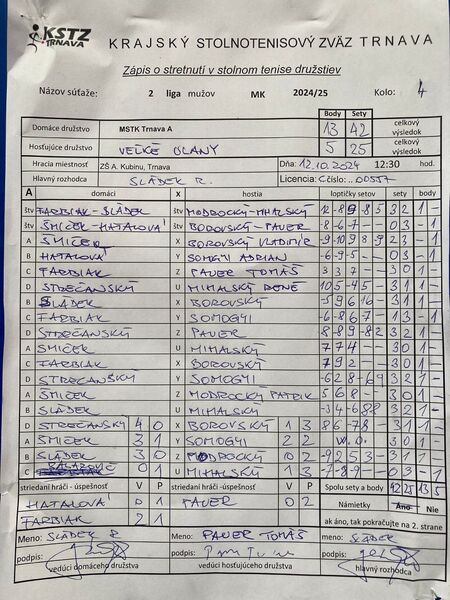 KSTZ
TRNAVA
KRAJSKÝ STOLNOTENISOVÝ ZVÄZ TRNAVA
Zápis o stretnutí v stolnom tenise družstiev
Názov súťaže: 2 liga mužov MK 2024/25 Kolo: 4
Body Sety
Domáce družstvo MSTK Trnava A 13 42 celkový výsledok
Hosťujúce družstvo VEĽKÉ ÚĽANY 5 25 celkový výsledok
Hracia miestnosť ZŠ A. Kubinu, Trnava Dňa: 12.10.2024 12:30 hod.
Hlavný rozhodca SLÁDEK R. Licencia: C číslo: .. 00557
A domáci X hostia loptičky setov sety body
štv FARBIAK-SLÁDEK štv MODROCKÝ-MIHALSKÝ 12 -8 9 -8 5 3 2 1 -
štv ŠMIČEK-HATALOVÁ štv BOROVSKÝ-PAVER -8 -6 -7 - - 0 3 - 1
A ŠMIČEK X BOROVSKÝ VLADIMÍR -9 10 9 8 9 2 3 - 1
B HATALOVÁ Y SOMOGYI ADRIAN -6 -9 -5 - - 0 3 - 1
C FARBIAK Z PAVER TOMÁŠ 3 3 7 - - 3 0 1 -
D STREČANSKÝ U MIHALSKÝ RENÉ 10 5 -4 5 - 3 1 1 -
B SLÁDEK X BOROVSKÝ -5 9 6 16 - 3 1 1 -
C FARBIAK Y SOMOGYI -6 -8 6 -7 - 1 3 - 1
D STREČANSKÝ Z PAVER 8 -8 9 -8 2 3 2 1 -
A ŠMIČEK U MIHALSKÝ 7 7 4 - - 3 0 1 -
C FARBIAK X BOROVSKÝ 7 9 2 - - 3 0 1 -
D STREČANSKÝ Y SOMOGYI -6 2 8 -6 9 3 2 1 -
A ŠMIČEK Z MODROCKÝ PATRIK 5 6 8 - - 3 0 1 -
B SLÁDEK U MIHALSKÝ -3 4 -6 8 8 3 2 1 -
D STREČANSKÝ 4 0 X BOROVSKÝ 1 3 8 6 -7 8 - 3 1 1 -
A ŠMIČEK 3 1 Y SOMOGYI 2 2 W.O. 3 0 1 -
B SLÁDEK 3 0 Z MODROCKÝ 0 2 -9 2 5 3 - 3 1 1 -
C 0 1 U MIHALSKÝ 1 3 -7 -8 -9 - - 0 3 - 1
striedaní hráči -úspešnosť V P striedaní hráči -úspešnosť V P Spolu sety a body 42 25 13 5
HATALOVÁ 0 1 PAVER 0 2 Námietky Áno Nie
FARBIAK 2 1 ak áno, tak pokračujte na 2. strane
Meno: SLÁDEK R Meno: PAVER TOMÁŠ meno: SLÁDEK
podpis: podpis: podpis:
vedúci domáceho družstva vedúci hosťujúceho družstva hlavný rozhodca